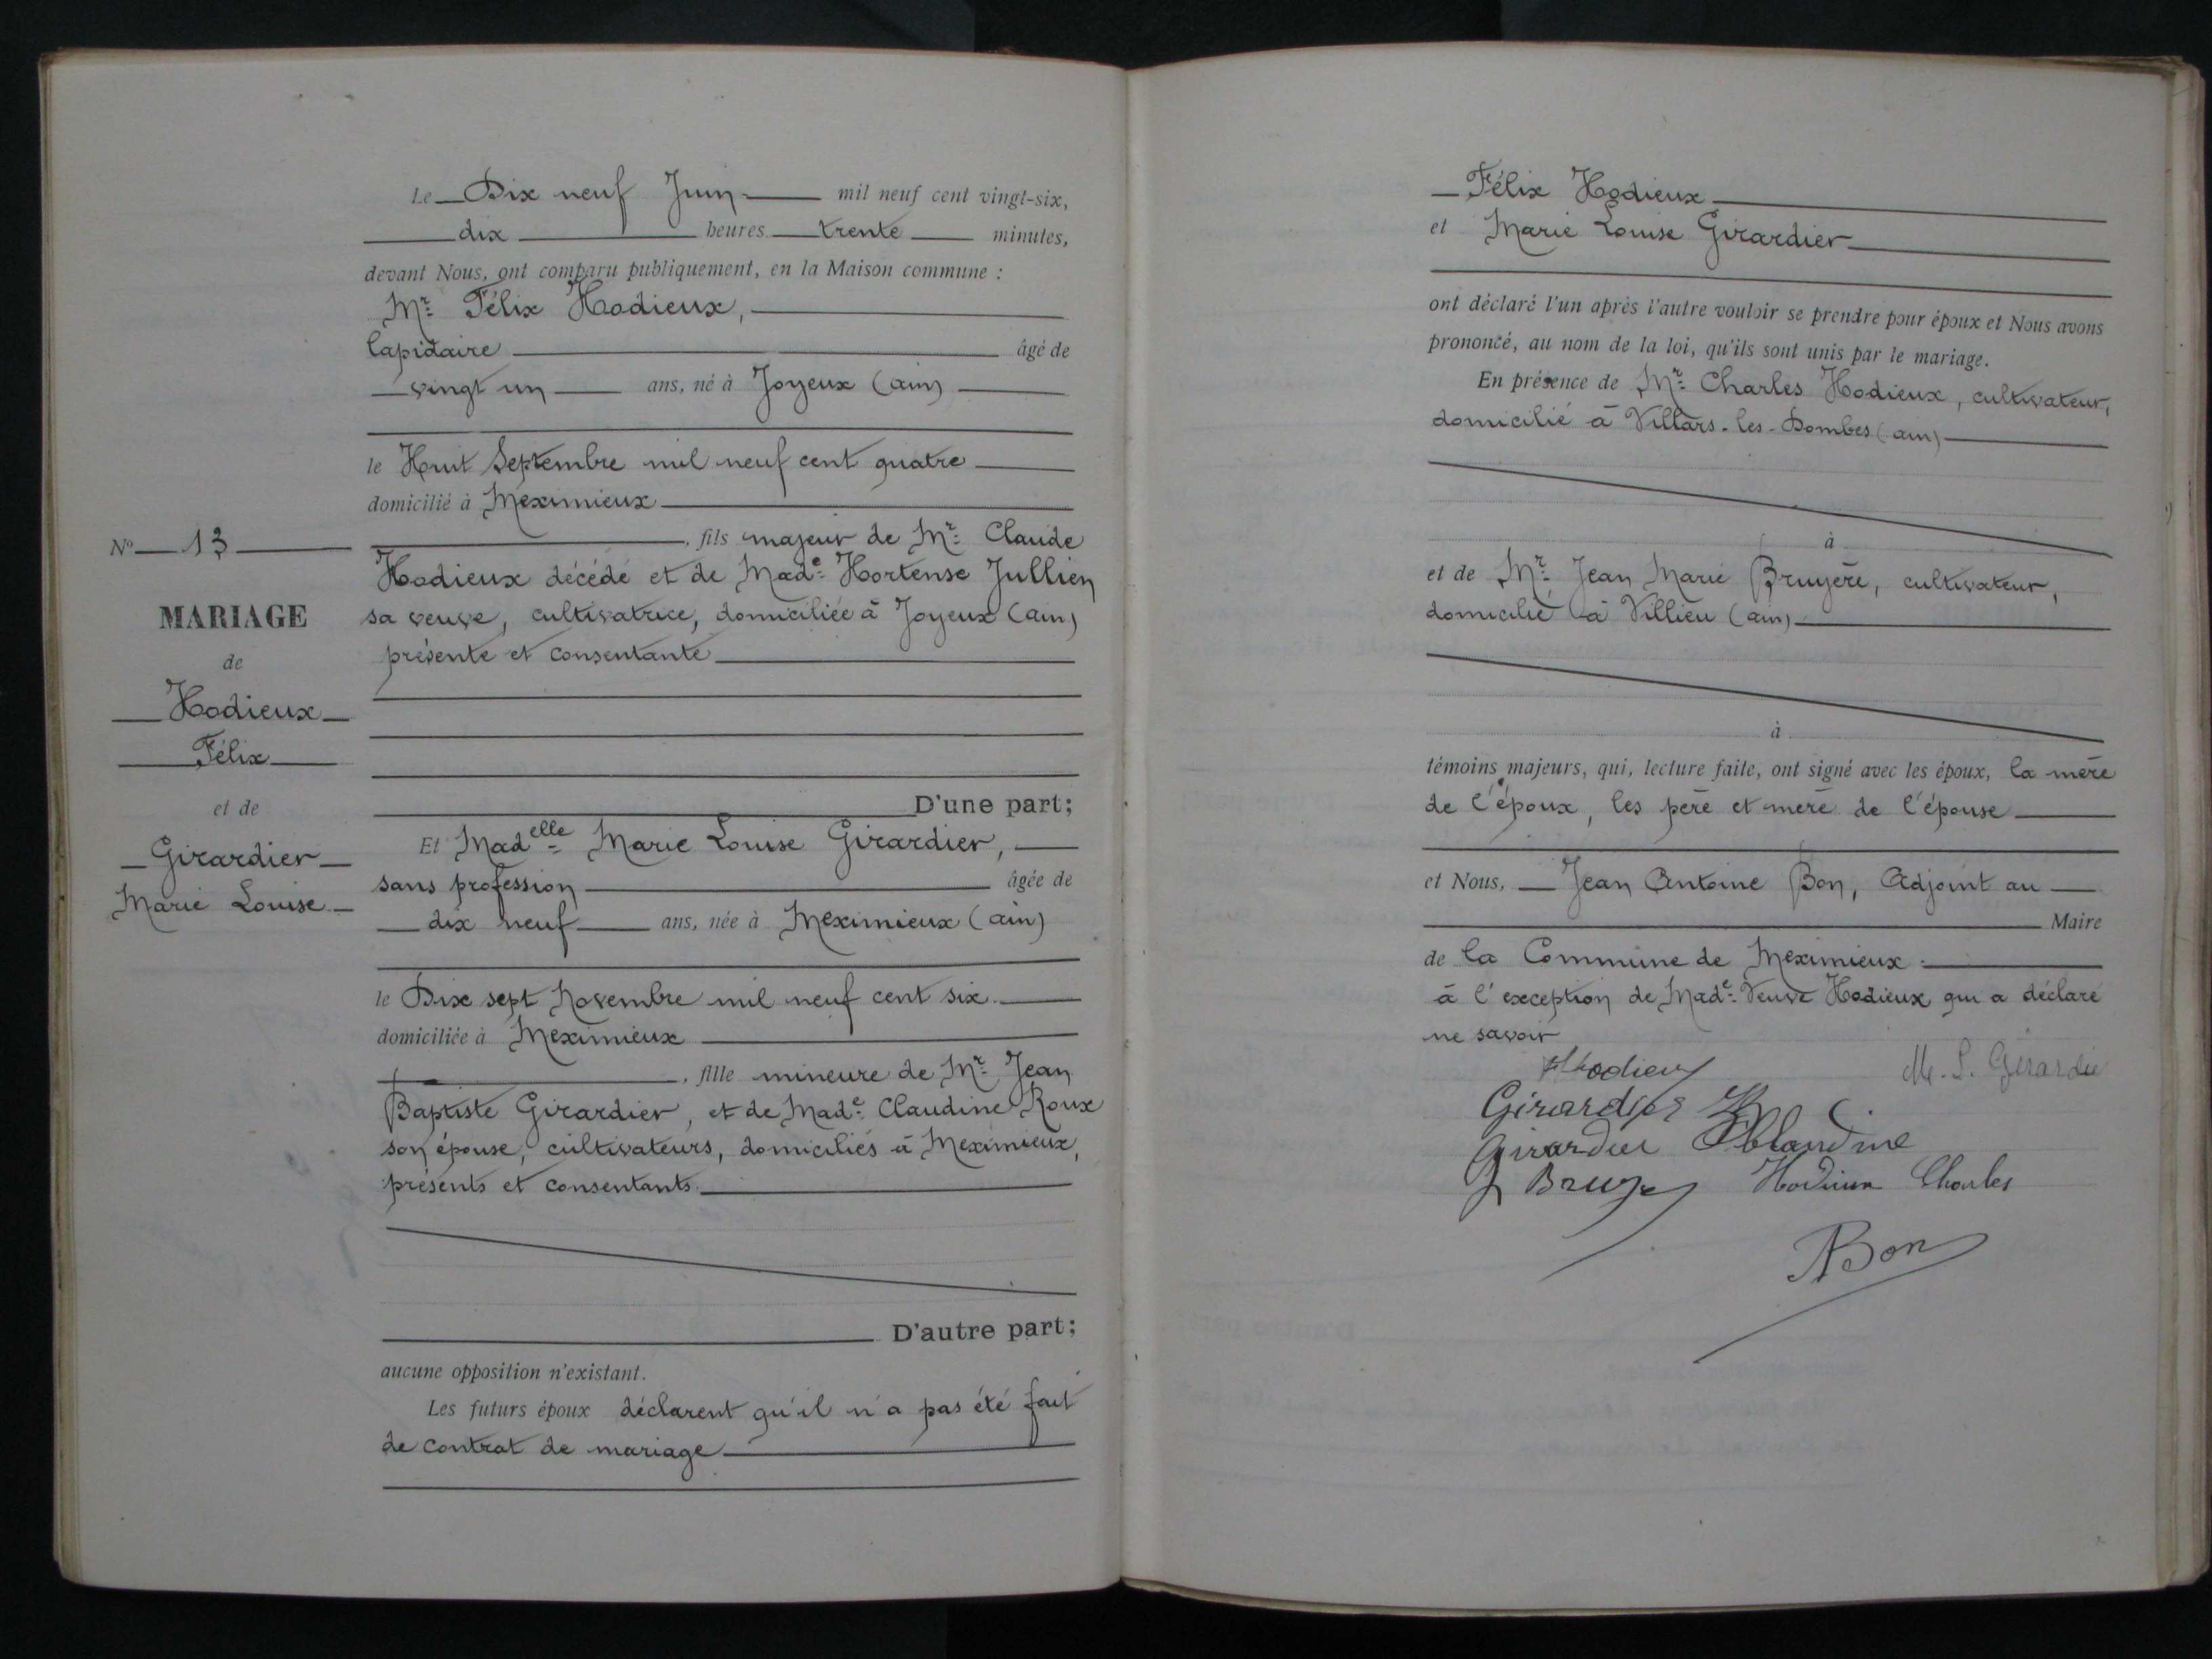 Le Dix neuf Juin mil neuf cent vingt-six,
dix heures trente minutes,
devant Nous, ont comparu publiquement, en la Maison commune :
Mr Félix Hodieux,
lapidaire âgé de
vingt un ans, né à Joyeux (ain)
le Huit Septembre mil neuf cent quatre
domicilié à Meximieux
, fils majeur de Mr Claude
Hodieux décédé et de Made Hortense Jullien
sa veuve, cultivatrice, domiciliée à Joyeux (ain)
présente et consentante
D'une part;
Nº 13
MARIAGE
de
Hodieux
Félix
et de
Girardier
Marie Louise
Et Madelle Marie Louise Girardier,
sans profession âgée de
dix neuf ans, née à Meximieux (ain)
le Dix sept Novembre mil neuf cent six
domiciliée à Meximieux
, fille mineure de Mr Jean
Baptiste Girardier, et de Made Claudine Roux
son épouse, cultivateurs, domiciliés à Meximieux,
présents et consentants
D'autre part;
aucune opposition n'existant.
Les futurs époux déclarent qu'il n'a pas été fait
de contrat de mariage
Félix Hodieux
et Marie Louise Girardier
ont déclaré l'un après l'autre vouloir se prendre pour époux et Nous avons
prononcé, au nom de la loi, qu'ils sont unis par le mariage.
En présence de Mr Charles Hodieux, cultivateur,
domicilié à Villars-les-Dombes (ain)
à
et de Mr Jean Marie Bruyère, cultivateur,
domicilié à Villieu (ain)
à
témoins majeurs, qui, lecture faite, ont signé avec les époux, la mère
de l'époux, les père et mère de l'épouse
et Nous, Jean Antoine Bon, Adjoint au
Maire
de la Commune de Meximieux
à l'exception de Made Veuve Hodieux qui a déclaré
ne savoir
Hodieux
M. L. Girardie
Girardier
Girardier Blandine
Hodieux Charles
Bon